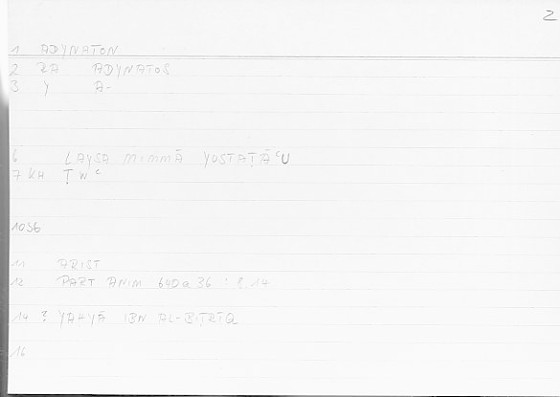 2
1 ADYNATON
2 RA ADYNATOS
3 Y A-
6 LAYSA MIMMĀ YUSTAṬĀʿU
7 KH ṬWʿ
1056
11 ARIST
12 PART ANIM 640a 36 : 8.14
14 ? YAḤYĀ IBN AL-BIṬRĪQ
16